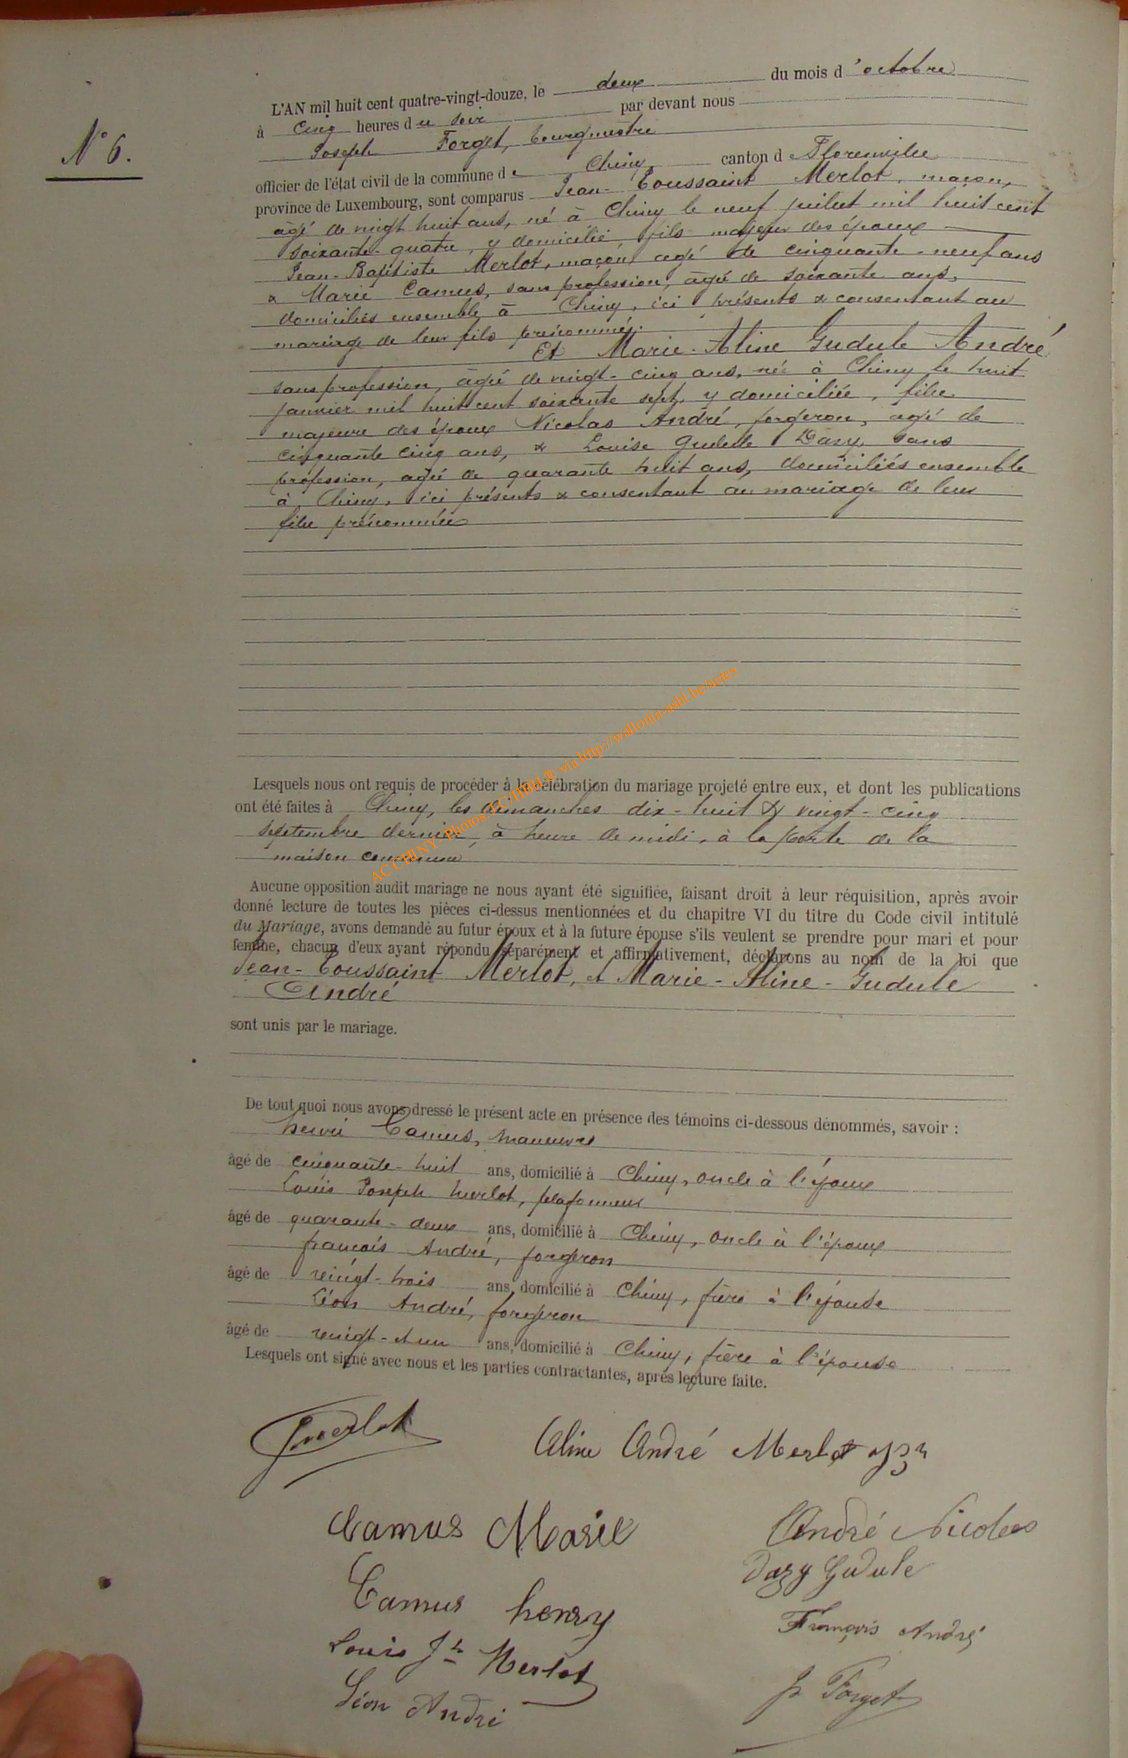 N° 6.
L'AN mil huit cent quatre-vingt-douze, le deux du mois d'octobre
à cinq heures du soir par devant nous
Joseph Forget, bourgmestre
officier de l'état civil de la commune de Chiny, canton d Florenville
province de Luxembourg, sont comparus Jean-Toussaint Merlot, maçon,
âgé de vingt huit ans, né à Chiny le neuf juillet mil huit cent
soixante-quatre, y domicilié, fils majeur des époux
Jean-Baptiste Merlot, maçon, agé de cinquante-neuf ans
& Marie Camus, sans profession, âgée de soixante ans,
domiciliés ensemble à Chiny, ici présents & consentant au
mariage de leur fils prénommé.
Et Marie-Aline Gudule André
sans profession, âgée de vingt-cinq ans, née à Chiny le huit
janvier mil huit cent soixante sept, y domiciliée, fille
majeure des époux Nicolas André, forgeron, agé de
cinquante cinq ans, & Louise Gudule Dazy, sans
profession, agée de quarante huit ans, domiciliés ensemble
à Chiny, ici présents & consentant au mariage de leur
fille prénommée
Lesquels nous ont requis de procéder à la célébration du mariage projeté entre eux, et dont les publications
ont été faites à Chiny, les dimanches dix-huit & vingt-cinq
septembre dernier, à heure de midi, à la porte de la
maison commune
Aucune opposition audit mariage ne nous ayant été signifiée, faisant droit à leur réquisition, après avoir
donné lecture de toutes les pièces ci-dessus mentionnées et du chapitre VI du titre du Code civil intitulé
du Mariage, avons demandé au futur époux et à la future épouse s'ils veulent se prendre pour mari et pour
femme, chacun d'eux ayant répondu séparément et affirmativement, déclarons au nom de la loi que
Jean-Toussaint Merlot, et Marie-Aline-Gudule
André
sont unis par le mariage.
De tout quoi nous avons dressé le présent acte en présence des témoins ci-dessous dénommés, savoir :
henri Camus, manœuvre
âgé de cinquante-huit ans, domicilié à Chiny, oncle à l'époux
Louis Joseph Merlot, plafonneur
âgé de quarante-deux ans, domicilié à Chiny, oncle à l'époux
françois André, forgeron
âgé de vingt-trois ans, domicilié à Chiny, frère à l'épouse
Léon André, forgeron
âgé de vingt-et un ans, domicilié à Chiny, frère à l'épouse
Lesquels ont signé avec nous et les parties contractantes, après lecture faite.
Merlot
Aline André Merlot
Camus Marie
André Nicolas
Dazy Gudule
Camus henry
François André
Louis Jh Merlot
Léon André
J. Forget